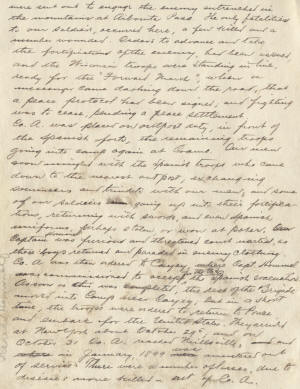 were sent out to engage the enemy entrenched in
the mountains at Aibonito Pass. The only fatalities
to our soldiers occurred here, a few killed and a
number wounded. Orders to advance and take
the fortifications of the enemy, had been issued
and the Wisconsin troops were standing in line,
ready for the "Forward March", when a
message came dashing down the road, that
a peace protocol had been signed, and fighting
was to cease, pending a peace settlement
Co. A was placed on outpost duty, in front of
the Spanish forts, the remaining troops
going into camp again at Coamo. Our men
soon mingled with the Spanish troops who came
down to the nearest outpost, exchanging
souvenirs and trinkets with our men, and some
of our soldiers going up into their fortifica-
tions, returning with swords, and even Spanish
uniforms, perhaps stolen, or won at poker. Our
Captain was furious and threatened court martial, as
the boys returned and paraded in enemy clothing
Co. A was then ordered to Cayey, Capt Hommel
was commissioned to accept the Spanish evacuation
As soon as this was completed, the rest of the Brigade
moved into Camp near Cayey, but in a short
time, the troops were ordered to return to Ponce
and embark for the United States. They arrived
at New York about October
October 31 Co. A. reached Neillsville and
in January, 1899 was mustered out
of service. There were a number of men, due to
disease more killed - out of Co. A.